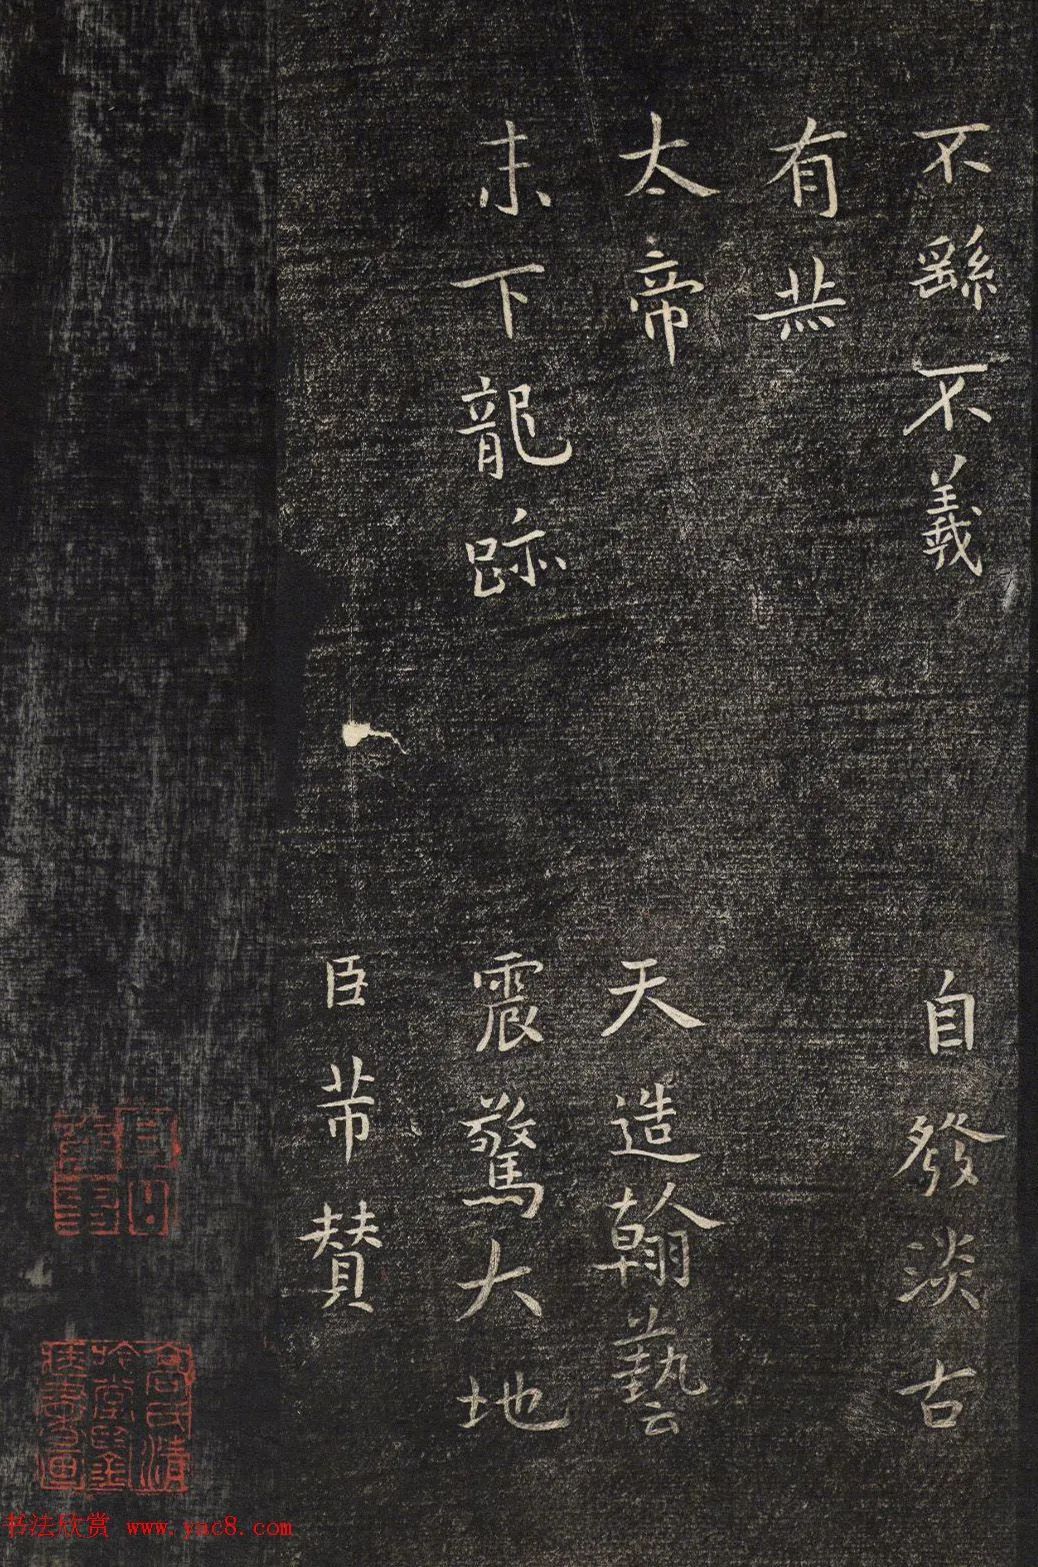 不繇不羲　自發淡古
有
太帝　天造翰藝
末下龍跡　震驚大地
臣芾贊
书法欣赏 www.yac8.com